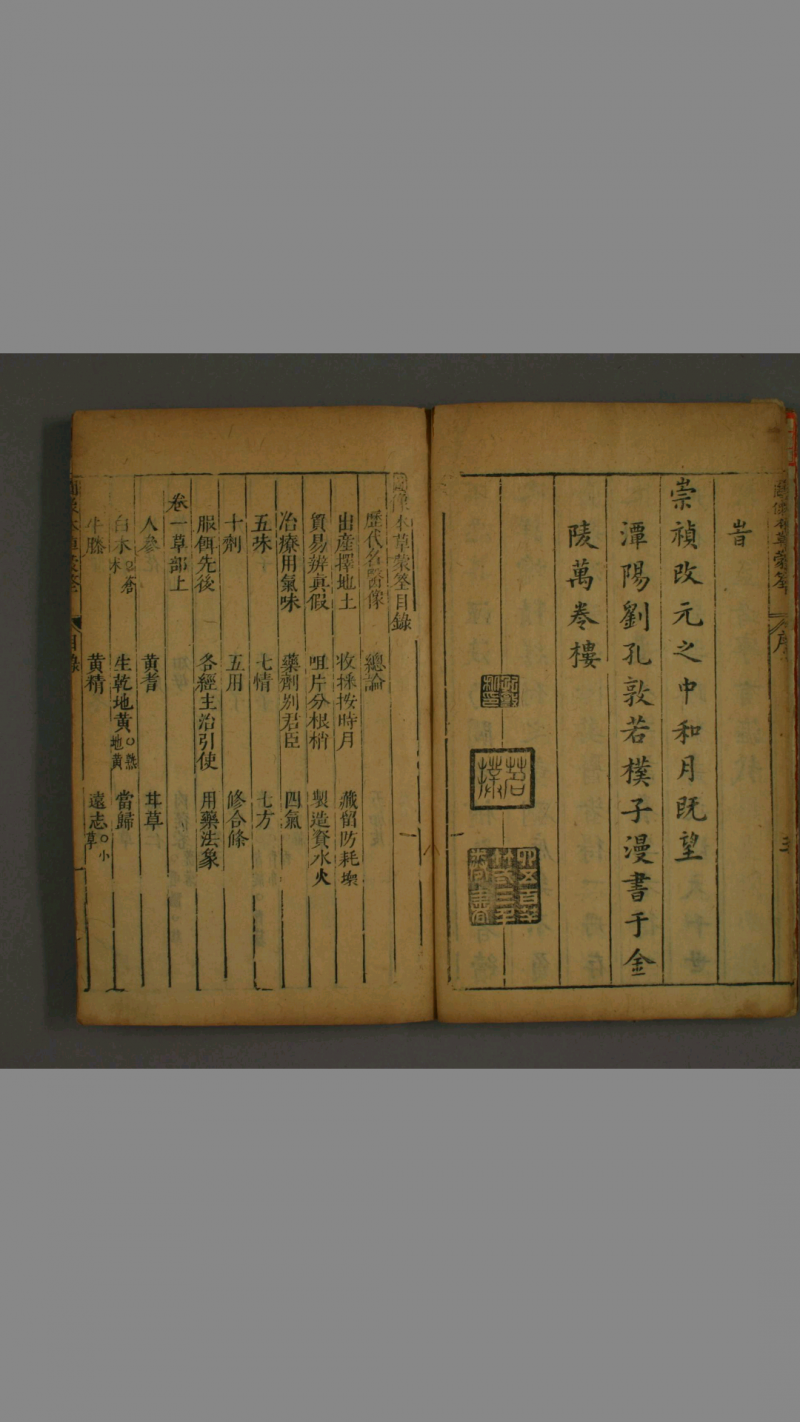 旹
崇禎改元之中和月既望
潭陽劉孔敦若樸子漫書于金
陵萬卷樓
若樸
本草蒙筌目錄
歷代名醫像 總論
出産擇地土 收採按時月 藏留防耗壞
貿易辨真假 咀片分根梢 製造資水火
治療用氣味 藥劑别君臣 四氣
五味 七情 七方
十劑 五用 修合條
服餌先後 各經主治引使 用藥法象
卷一草部上
人參 黄耆 甘草
白术 生乾地黄○熟地黄 當歸
牛膝 黄精 遠志○小草